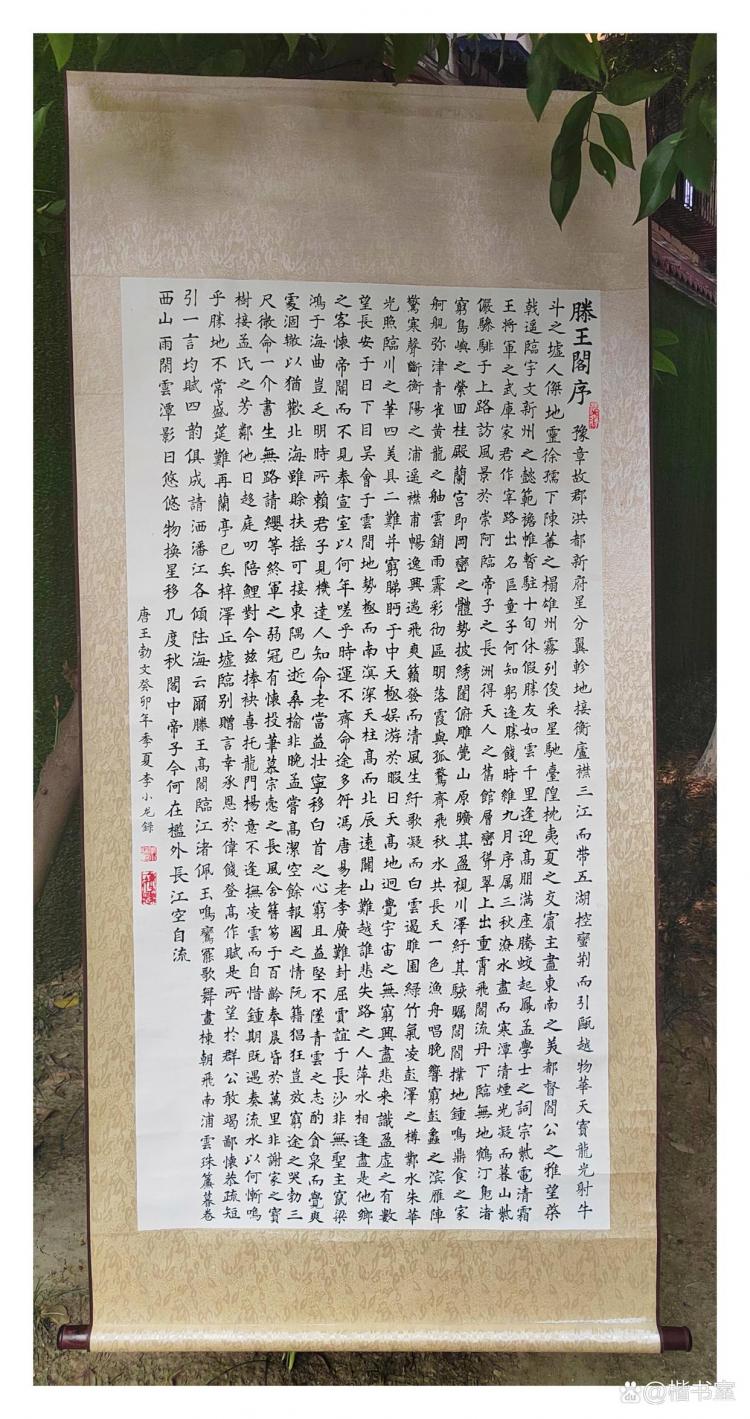 滕王閣序 豫章故郡洪都新府星分翼軫地接衡廬襟三江而帶五湖控蠻荊而引甌越物華天寶龍光射牛
斗之墟人傑地靈徐孺下陳蕃之榻雄州霧列俊采星馳臺隍枕夷夏之交賓主盡東南之美都督閻公之雅望棨
戟遥臨宇文新州之懿範襜帷暫駐十旬休假勝友如雲千里逢迎高朋滿座騰蛟起鳳孟學士之詞宗紫電清霜
王將軍之武庫家君作宰路出名區童子何知躬逢勝餞時維九月序属三秋潦水盡而寒潭清煙光凝而暮山紫
儼驂騑于上路訪風景於崇阿臨帝子之長洲得天人之舊館層巒聳翠上出重霄飛閣流丹下臨無地鶴汀鳧渚
窮島嶼之縈回桂殿蘭宫即岡巒之體势披綉闥俯雕甍山原曠其盈視川澤紆其駭矚閭閻撲地鍾鳴鼎食之家
舸舰弥津青雀黄龍之舳雲銷雨霽彩彻區明落霞與孤鶩齊飛秋水共長天一色漁舟唱晚響窮彭蠡之滨雁陣
驚寒聲斷衡陽之浦遥襟甫暢逸興遄飛爽籟發而清風生纤歌凝而白雲遏睢園緑竹氣凌彭澤之樽鄴水朱華
光照臨川之筆四美具二難并窮睇眄于中天極娱游於暇日天高地迥覺宇宙之無窮興盡悲来識盈虚之有數
望長安于日下目吴會于雲間地势極而南溟深天柱高而北辰遠關山難越誰悲失路之人萍水相逢盡是他鄉
之客懷帝閽而不見奉宣室以何年嗟乎時運不齊命途多舛馮唐易老李廣難封屈賈誼于長沙非無聖主竄梁
鴻于海曲豈乏明時所賴君子見機達人知命老當益壮寧移白首之心窮且益堅不墜青雲之志酌貪泉而覺爽
處涸辙以猶歡北海雖賒扶摇可接東隅已逝桑榆非晚孟嘗高潔空餘報國之情阮籍猖狂豈放窮途之哭勃三
尺微命一介書生無路請纓等終軍之弱冠有懷投筆慕宗悫之長風舍簪笏于百齡奉晨昏於萬里非謝家之寶
樹接孟氏之芳鄰他日趋庭叨陪鯉對今兹捧袂喜托龍門楊意不逢撫凌雲而自惜鍾期既遇奏流水以何慚嗚
乎勝地不常盛筵難再蘭亭已矣梓澤丘墟臨别贈言幸承恩於偉餞登高作賦是所望於群公敢竭鄙懷恭疏短
引一言均賦四韵俱成請洒潘江各傾陆海云爾滕王高閣臨江渚佩玉鳴鸞罷歌舞畫棟朝飛南浦雲珠簾暮卷
西山雨閑雲潭影日悠悠物換星移几度秋閣中帝子今何在檻外長江空自流
唐王勃文癸卯年季夏李小龙録
@楷书室